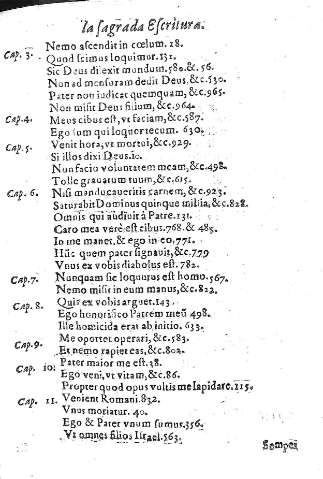 la sagrada Escritura.
Nemo ascendit in cœlum. 18.
Cap. 3. Quod scimus loquimur. 131.
Sic Deus dilexit mundum. 580. & 56.
Non ad mensuram dedit Deus, &c. 530.
Pater non iudicat quemquam, &c. 965.
Non misit Deus filium, &c. 964.
Cap. 4. Meus cibus est, vt faciam, &c. 587.
Ego sum qui loquor tecum. 630.
Cap. 5. Venit hora, vt mortui, &c. 929.
Si illos dixi Deus. 10.
Non facio voluntatem meam, &c. 498.
Tolle grauatum tuum, &c. 615.
Cap. 6. Nisi manducaueritis carnem, &c. 923.
Saturabit Dominus quinque millia, &c. 828.
Omnis qui audiuit à Patre. 131.
Caro mea verè est cibus. 768. & 485.
In me manet, & ego in eo. 771.
Hũc quem pater signauit, &c. 779
Vnus ex vobis diabolus est. 782.
Cap. 7. Nunquam sic loquutus est homo. 567.
Nemo misit in eum manus, &c. 823.
Cap. 8. Quis ex vobis arguet. 143.
Ego honorifico Patrem meũ 498.
Ille homicida erat ab initio. 633.
Cap. 9. Me oportet operari, &c. 583.
Et nemo rapiet eas, &c. 802.
Cap. 10. Pater maior me est. 38.
Ego veni, vt vitam, &c. 86.
Propter quod opus vultis me lapidare. 115.
Cap. 11. Venient Romani. 832.
Vnus moriatur. 40.
Ego & Pater vnum sumus. 356.
Vt omnes filios Israel. 563.
Semper